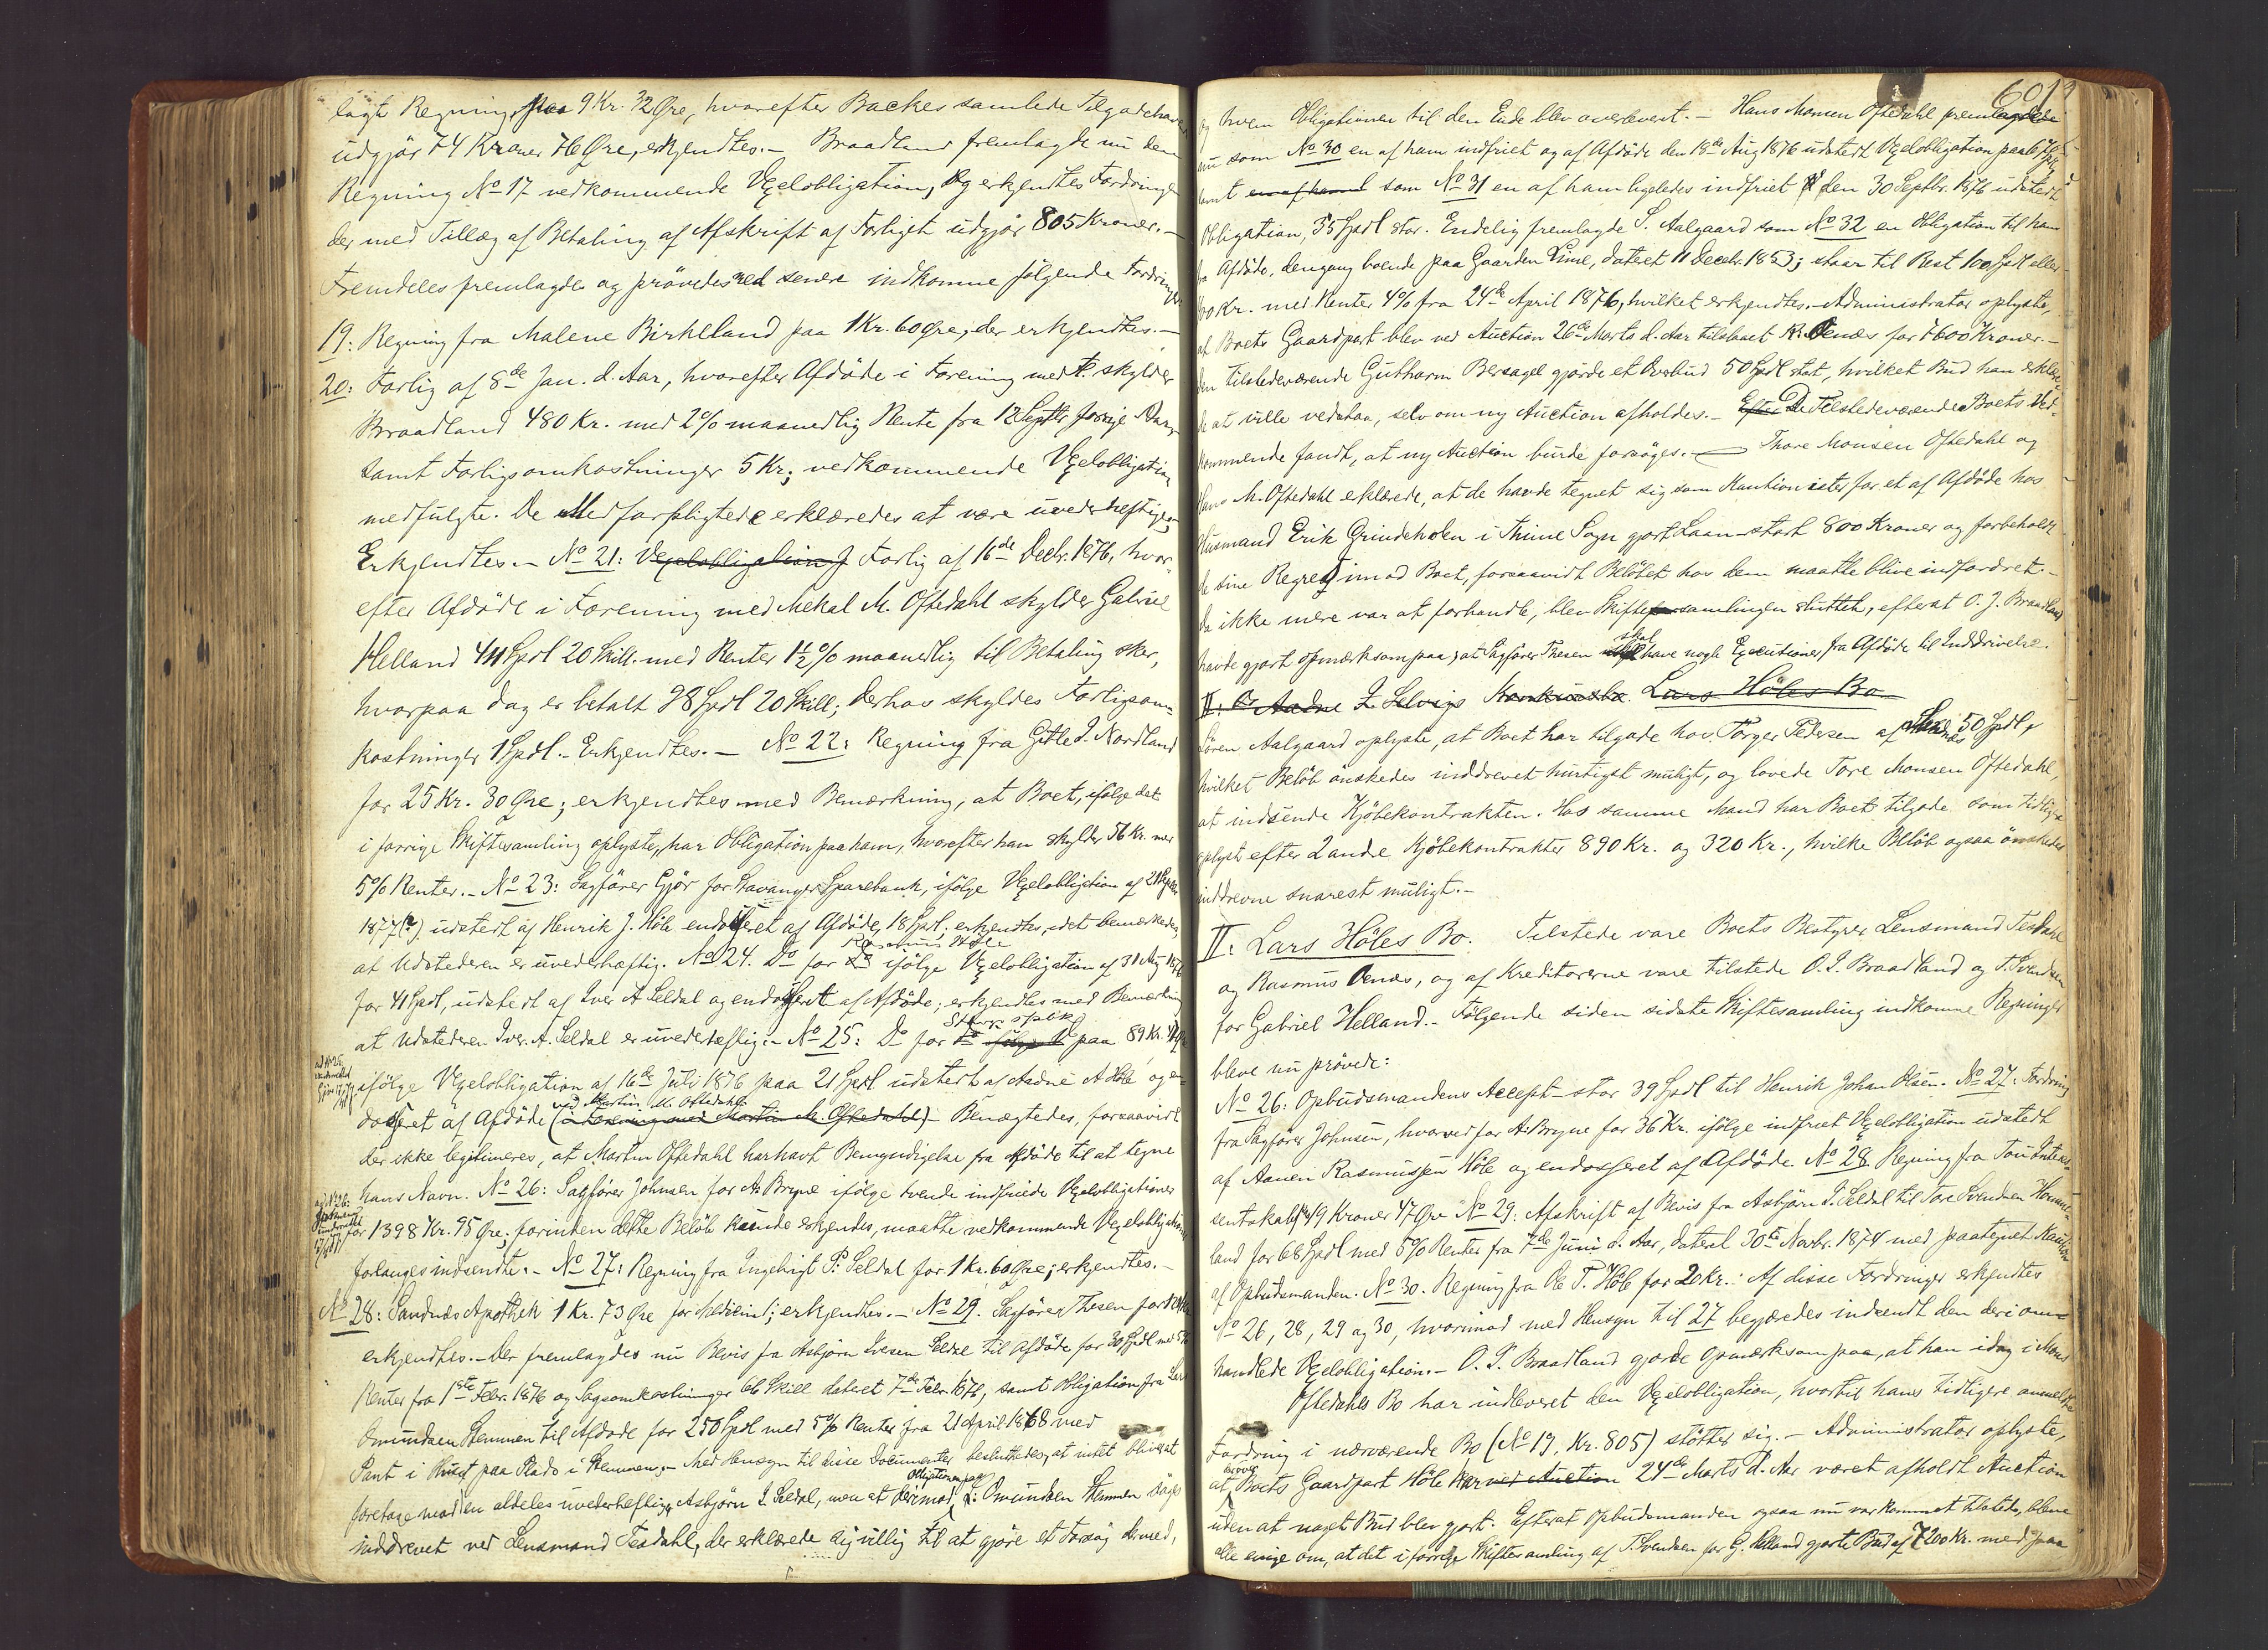 lagt Regning paa 9 Kr. 32 Øre, hvorefter Backes samlede Tilgodehav
udgjør 74 Kroner 76 Øre, erkjendtes. – Braadland fremlagde nu den
Regning No 17 vedkommende Vexelobligation, og erkjendtes Fordringen
der med Tillæg af Betaling af Afskrift af Forliget udgjør 805 Kroner. –
Fremdeles fremlagdes og prøvedes ned senere indkomne følgende Fordringer
19: Regning fra Malene Birkeland paa 1 Kr. 60 Øre, der erkjendtes. –
20: Forlig af 8de Jan. d. Aar, hvorefter Afdøde i Forening med skylder
Braadland 480 Kr. med 2% maanedlig Rente fra 12 Septbr. forrige Aar,
samt Forligsomkostninger 5 Kr.; vedkommende Vexelobligation
medfulgte. De Medforpligtede erklæredes at være uvederheftige.
Erkjendtes. – No 21: Vexelobligation f Forlig af 16de Decbr. 1876, hvor-
efter Afdøde i Forening med Mekal M. Oftedahl skylder Gabriel
Helland 411 Spdl 20 Skill. med Renter 1½% maanedlig til Betaling sker,
hvorpaa dog er betalt 28 Spdl 20 Skill; derhos skyldes Forligsom-
kostninger 1 Spdl. – Erkjendtes. – No 22: Regning fra Gitle I. Nordland
for 25 Kr. 30 Øre; erkjendtes med Bemærkning, at Boet, ifølge det
i forrige Skiftesamling oplyste, har Obligation paa ham, hvorefter han skylder 56 Kr. med
5% Renter. – No 23: Sagfører Gjør for Stavanger Sparebank, ifølge Vexelobligation af 21 Septbr
1877(?) udstedt af Henrik J. Høle endosseret af Afdøde, 18 Spdl; erkjendtes, idet bemærkedes,
Rasmus Høle
at Udstederen er uvederhæftig. No 24. Do for Do ifølge Vexelobligation af 31 Aug 1876
for 41 Spdl, udstedt af Iver A Seldal og endosseret af Afdøde; erkjendtes med Bemærkning
at Udstederen Iver. A. Seldal er uvederhæftig. – No 25: Do for Do ifølge V paa 89 Kr.
ifølge Vexelobligation af 16de Juli 1876 paa 21 Spdl. udstedt af Aadne A Høle og en-
ved Martin M. Oftedahl
dosseret af Afdøde (i Forening med Martin M. Oftedahl) – Benægtedes, forsaavidt
der ikke legitimeres, at Martin Oftedahl har havt Bemyndigelse fra Afdøde til at tegne
hans Navn. No 26: Sagfører Johnsen for A. Bryne ifølge tvende indfriede Vexelobligationer
for 1398 Kr. 95 Øre; forinden dette Beløb kunde erkjendes, maatte vedkommende Vexelobligationer
forlanges indsendte. – No 27: Regning fra Ingebrigt P. Seldal for 1 Kr. 60 Øre; erkjendtes. –
No 28: Sandnæs Apothek 1 Kr. 73 Øre for Medicin; erkjendtes. – No 29. Sagfører Thesen for
erkjendtes. – Der fremlagdes nu Bevis fra Asbjørn Ivesen Seldal til Afdøde for 30 Spdl med 5%
Renter fra 1ste Febr. 1876 og Sagsomkostninger 66 Skill dateret 7de Febr. 1876, samt Obligation fra Lars
Omundsen Stemmen til Afdøde for 250 Spdl med 5% Renter fra 21 April 1868 med
Pant i Huset paa Plads i Stemmen. – Med Hensyn til disse Documenter besluttedes, at intet blivesat
Obligationen paa
foretage mod den aldeles uvederheftige Asbjørn I. Seldal, men at derimod L: Omundsen Stemmen søges
inddrevet ved Lensmand Tesdahl, der erklærede sig villig til at gjøre et Forsøg dermed,
601
og hvem Obligationen til den Ende blev overleveret. – Hans Monsen Oftedahl fremlagde
nu som No 30 en af ham indfriet og af Afdøde den 18de Aug 1876 udstedt Vexelobligation paa
samt en af ham som No 31 en af ham ligeledes indfriet den 30 Septbr. 1876 udstedt
Obligation, 35 Spdl stor. Endelig fremlagde S. Aalgaard som No 32 en Obligation til ham
fra Afdøde, dengang boende paa Gaarden Lime, dateret 11 Decebr. 1853; staar til Rest 100 Spdl eller
400 Kr. med Renter 4% fra 24de April 1876, hvilket erkjendtes. – Administrator oplyste,
at Boets Gaardpart blev ved Auction 26de Marts d. Aar tilslaaet R. Oenæs for 7600 Kroner. –
Den tilstedeværende Gutharm Bersagel gjorde et Overbud 50 Spdl stort, hvilket Bud han erklære-
de at ville vedstaa, selv om ny Auction afholdes. – Efter De tilstedeværende Boets Ved-
kommende fandt, at ny Auction burde forsøges. – Thore Monsen Oftedahl og
Hans M. Oftedahl erklærede, at de havde tegnet sig som Kautionister for et af Afdøde hos
Husmand Erik Grindeholen i Thime Sogn gjort Laan stort 800 Kroner og forbehold-
de sine Regres imod Boet, forsaavidt Beløbet hos dem maatte blive indfordret. –
Da ikke mere var at forhandle, blev Skiftesamlingen sluttet, efterat O. J. Braadland
skal
havde gjort opmærksom paa, at Sagfører Thesen have nogle Executioner fra Afdøde til Inddrivelse.
II: Aadne L Selvigs Konkursbo. Lars Høles Bo
Søren Aalgaard oplyste, at Boet har tilgode hos Torger Pedersen af 50 Spdl,
hvilket Beløb ønskedes inddrevet hurtigst muligt, og lovede Tore Monsen Oftedahl,
at indsende Kjøbekontrakten. Hos samme Mand har Boet tilgode som tidligere
oplyst efter 2 andre Kjøbekontrakter 890 Kr. og 320 Kr., hvilke Beløb ogsaa ønskedes
inddrevne snarest muligt. –
II: Lars Høles Bo. Tilstede vare Boets Bestyrer Lensmand Tesdahl
og Rasmus Oenæs, og af Kreditorerne vare tilstede O. I. Braadland og T. Svendsen
for Gabriel Helland. – Følgende siden sidste Skiftesamling indkomne Regninger
bleve nu prøvede:
No 26: Opbudsmandens Accept – stor 39 Spdl til Henrik Johan Olsen. No 27: Fordring
fra Sagfører Johnsen, hvorved for A. Bryne for 36 Kr. ifølge indfriet Vexelobligation udstedt
af Aanen Rasmussen Høle og endosseret af Afdøde. No 28 Regning fra Tou Interes-
sentskab 49 Kroner 47 Øre No 29: Afskrift af Bevis fra Asbjørn I. Seldal til Tore Svendsen Homme-
land for 68 Spdl med 5% Renter fra 7de Juni d. Aar, dateret 30te Novbr. 1874 med paategnet Kaution
af Opbudsmanden. No 30. Regning fra Ole T. Høle for 20 Kr.: Af disse Fordringer erkjendtes
No 26, 28, 29 og 30, hvorimod med Hensyn til 27 begjæredes indsendt den deri om-
handlede Vexelobligation. – O. I. Braadland gjorde opmærksom paa, at han idag i Mons
Oftedahls Bo har indleveret den Vexelobligation, hvortil hans tidligere anmeldte
Fordring i nærværende Bo (No 19, Kr. 805) støtter sig. – Administrator oplyste,
over
at Boets Gaardpart Høle har ved Auction 24de Marts d. Aar været afholdt Auction
uden at noget Bud blev gjort. Efterat Opbudsmanden ogsaa nu var kommet tilstede, bleve
alle enige om, at det i forrige Skiftesamling af T. Svendsen for G. Helland gjorte Bud af 7200 Kr. med paa